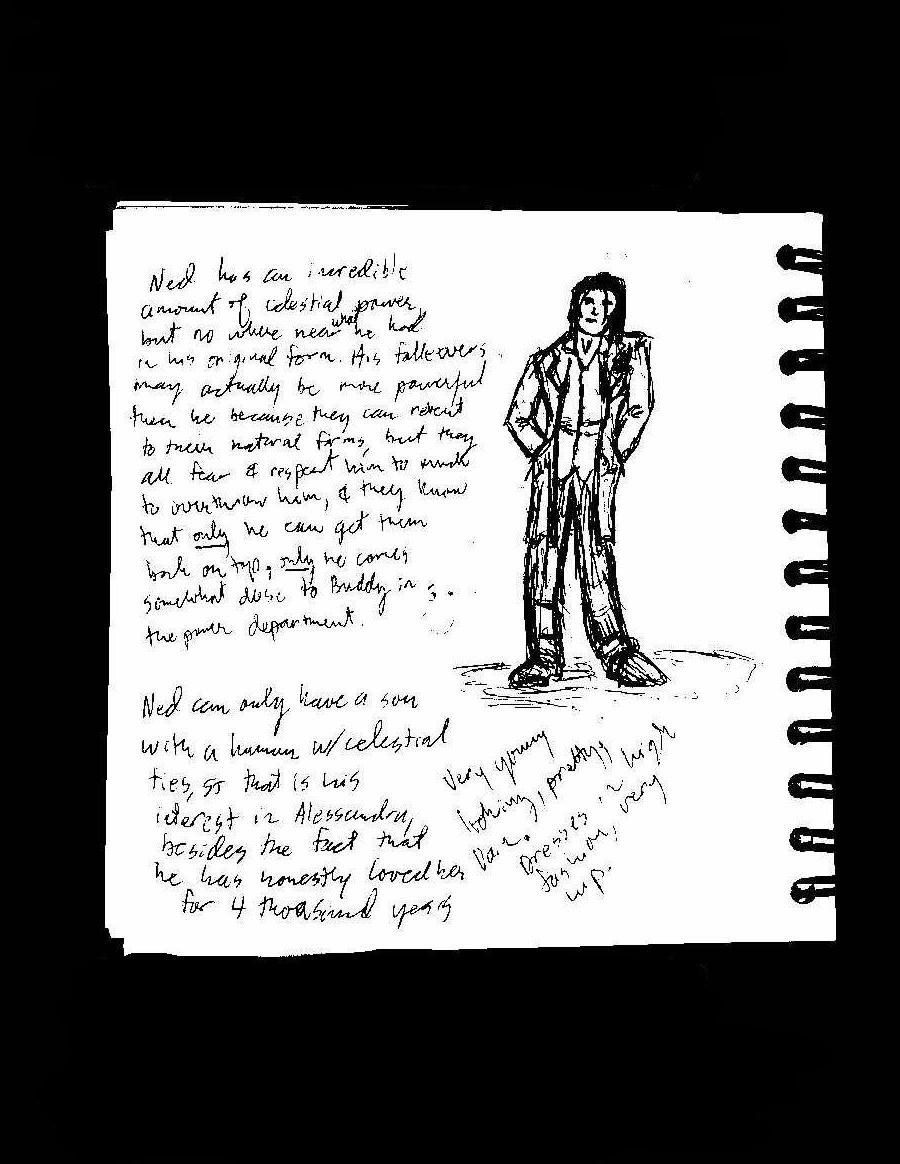 Ned has an incredible
amount of celestial power,
but no where near what he had
in his original form. His followers
may actually be more powerful
then he because they can revert
to their natural forms, but they
all fear & respect him to much
to overthrow him, & they know
that only he can get them
back on top, only he comes
somewhat close to Buddy in
the power department.
Ned can only have a son
with a human w/celestial
ties, so that is his
interest in Alessandra,
besides the fact that
he has honestly loved her
for 4 thousand years
Very young
looking, pretty,
Dresses in high
fashion, very